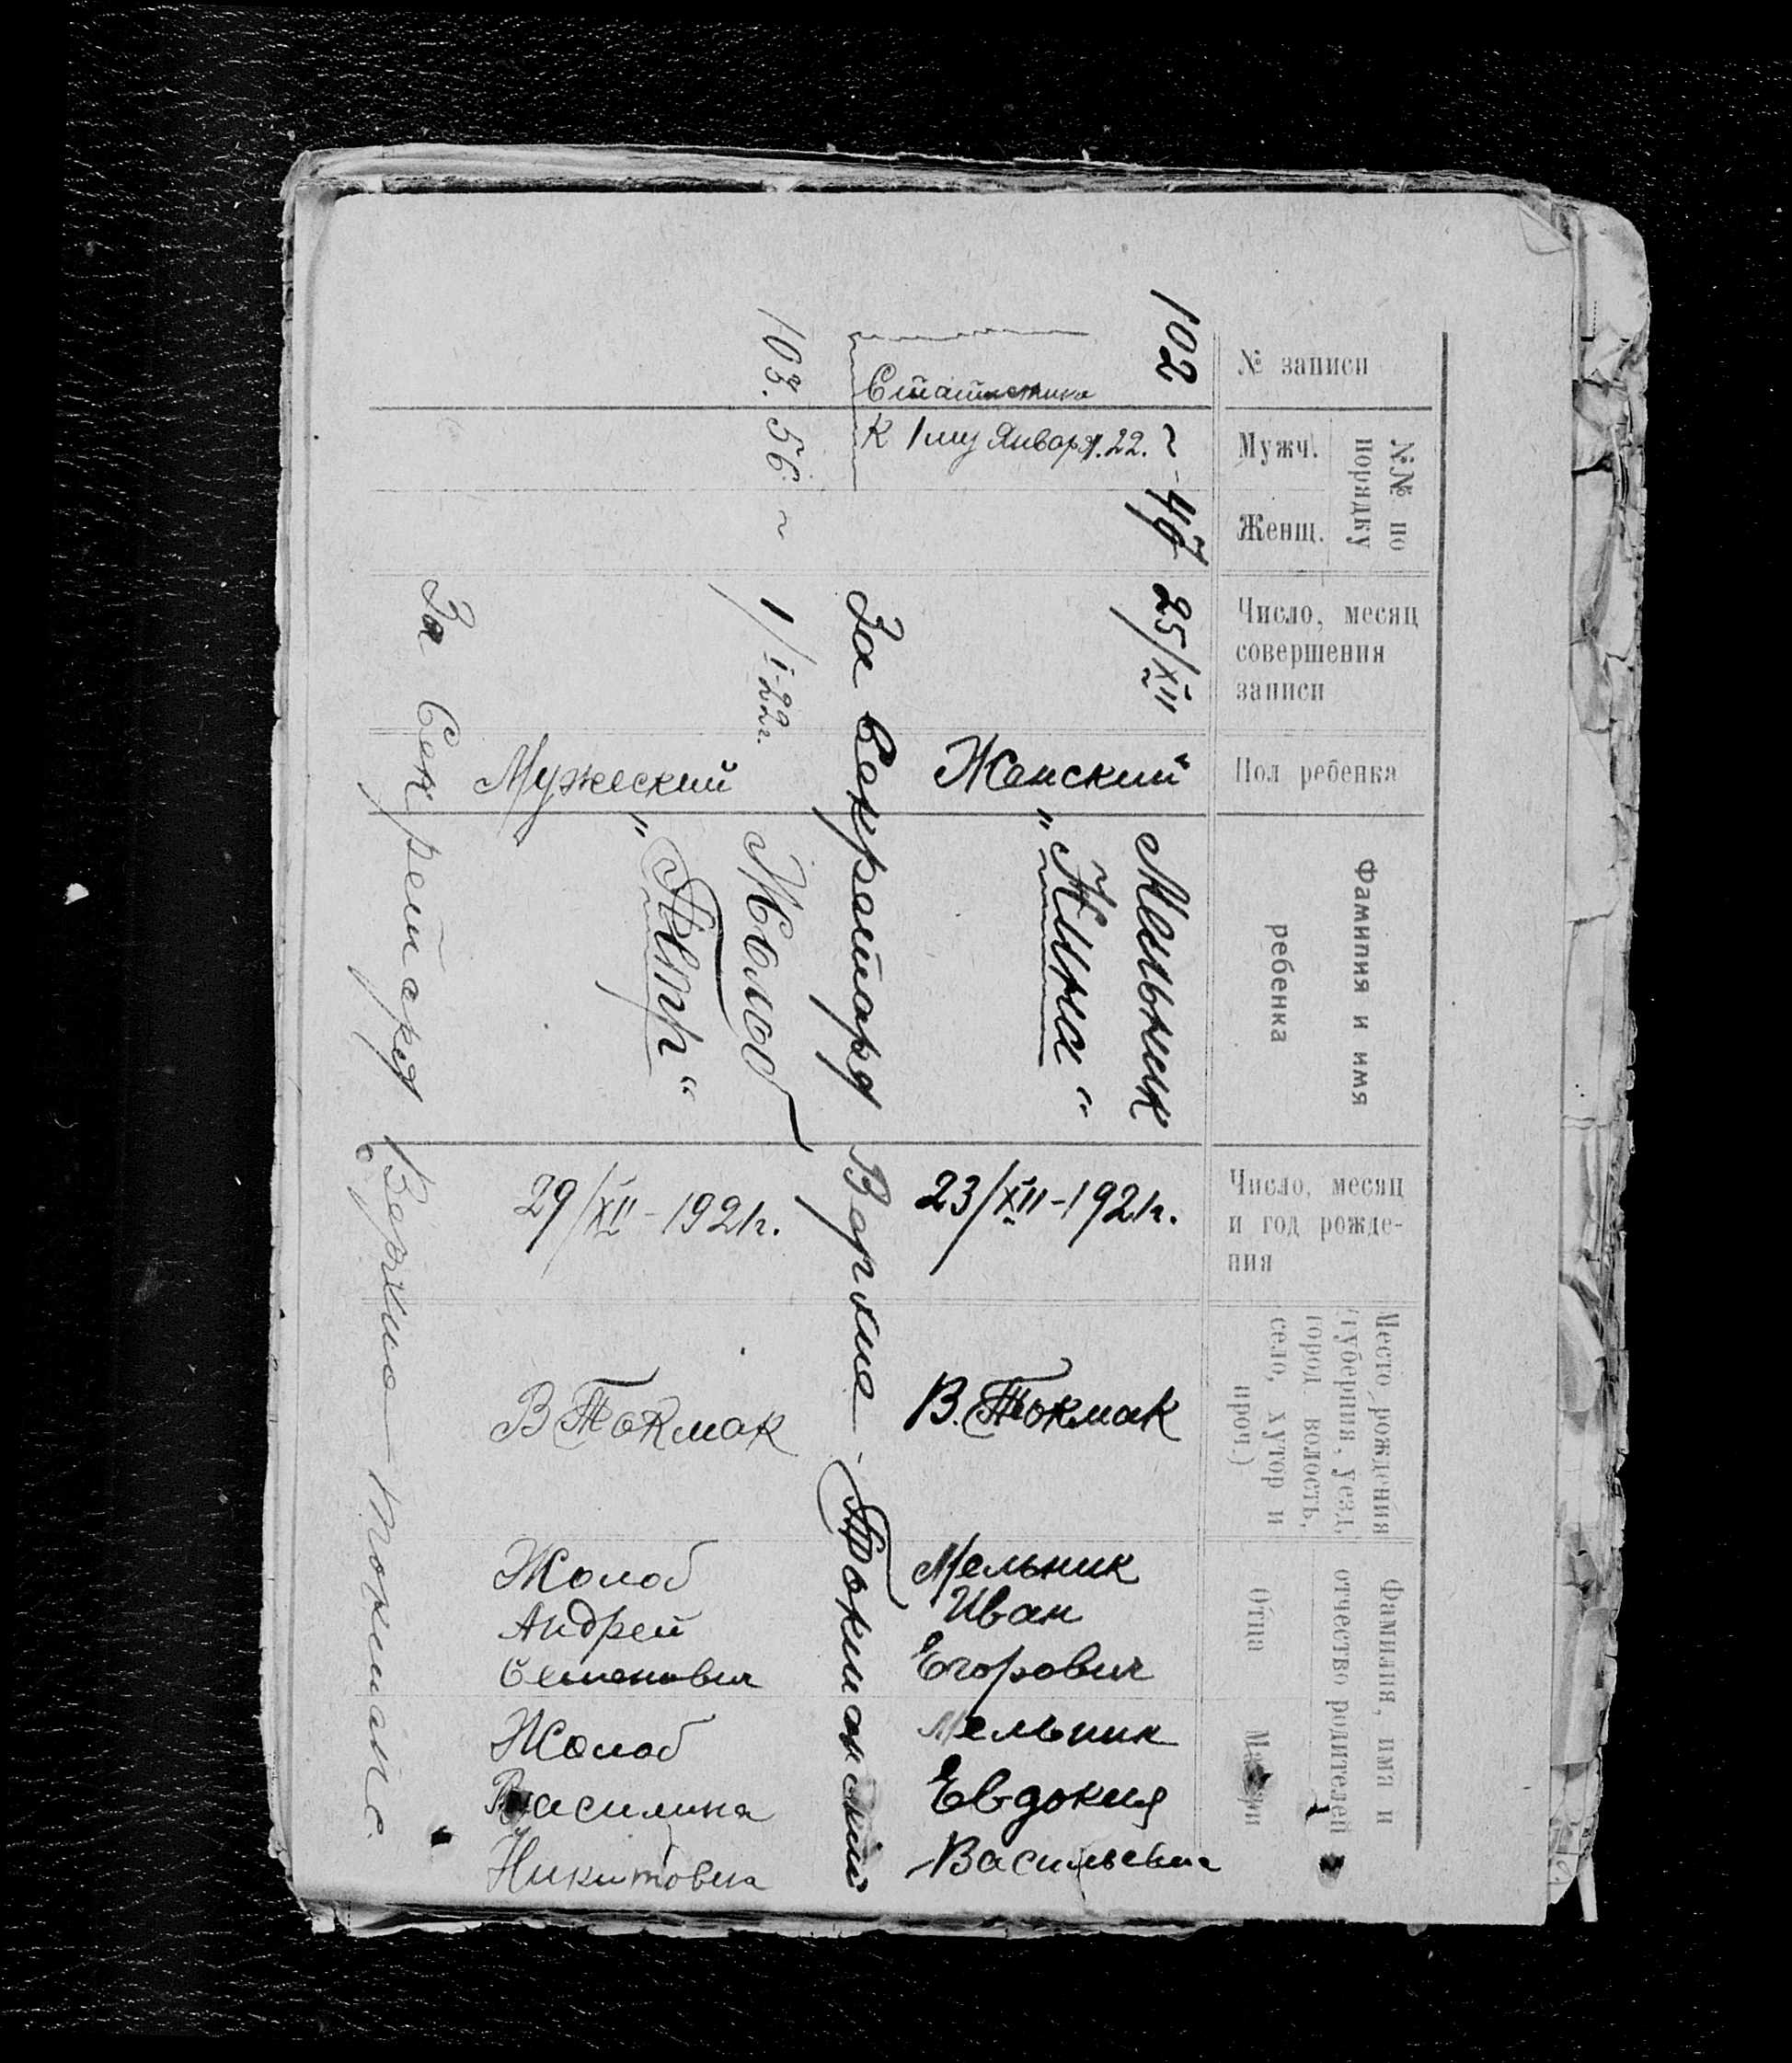 № записи
№№ по
порядку
Мужч.
Женщ.
Число, месяц
совершения
записи
Пол ребенка
Фамилия и имя
ребенка
Число, месяц
и год рожде-
ния
Место рождения
(губерния, уезд,
город волость,
село, хутор и
проч.)
Фамилия, имя и
отчество родителей
Отца
Матери
102
~
47
25/XII
Женский
Мельник
"Нина"
23/XII-1921г.
В. Токмак
Мельник
Иван
Егорович
Мельник
Евдокия
Васильевна
Статистика
К 1му Января. 22.
За Секретаря Верхне-Токмакский
103.
56
~
1/I-22г.
Мужеский
Жолоб
"Петр"
29/XII-1921г.
В Токмак
Жолоб
Андрей
Семенович
Жолоб
Василина
Никитовна
За Секретаря